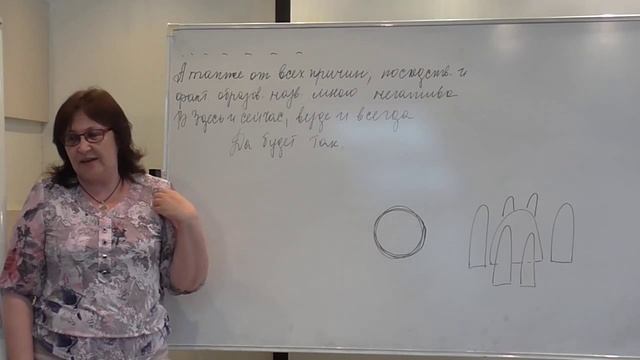 А также от всех причин, последств. и
факт образов. назв. мною негатива
Здесь и сейчас, везде и всегда
Да будет так.